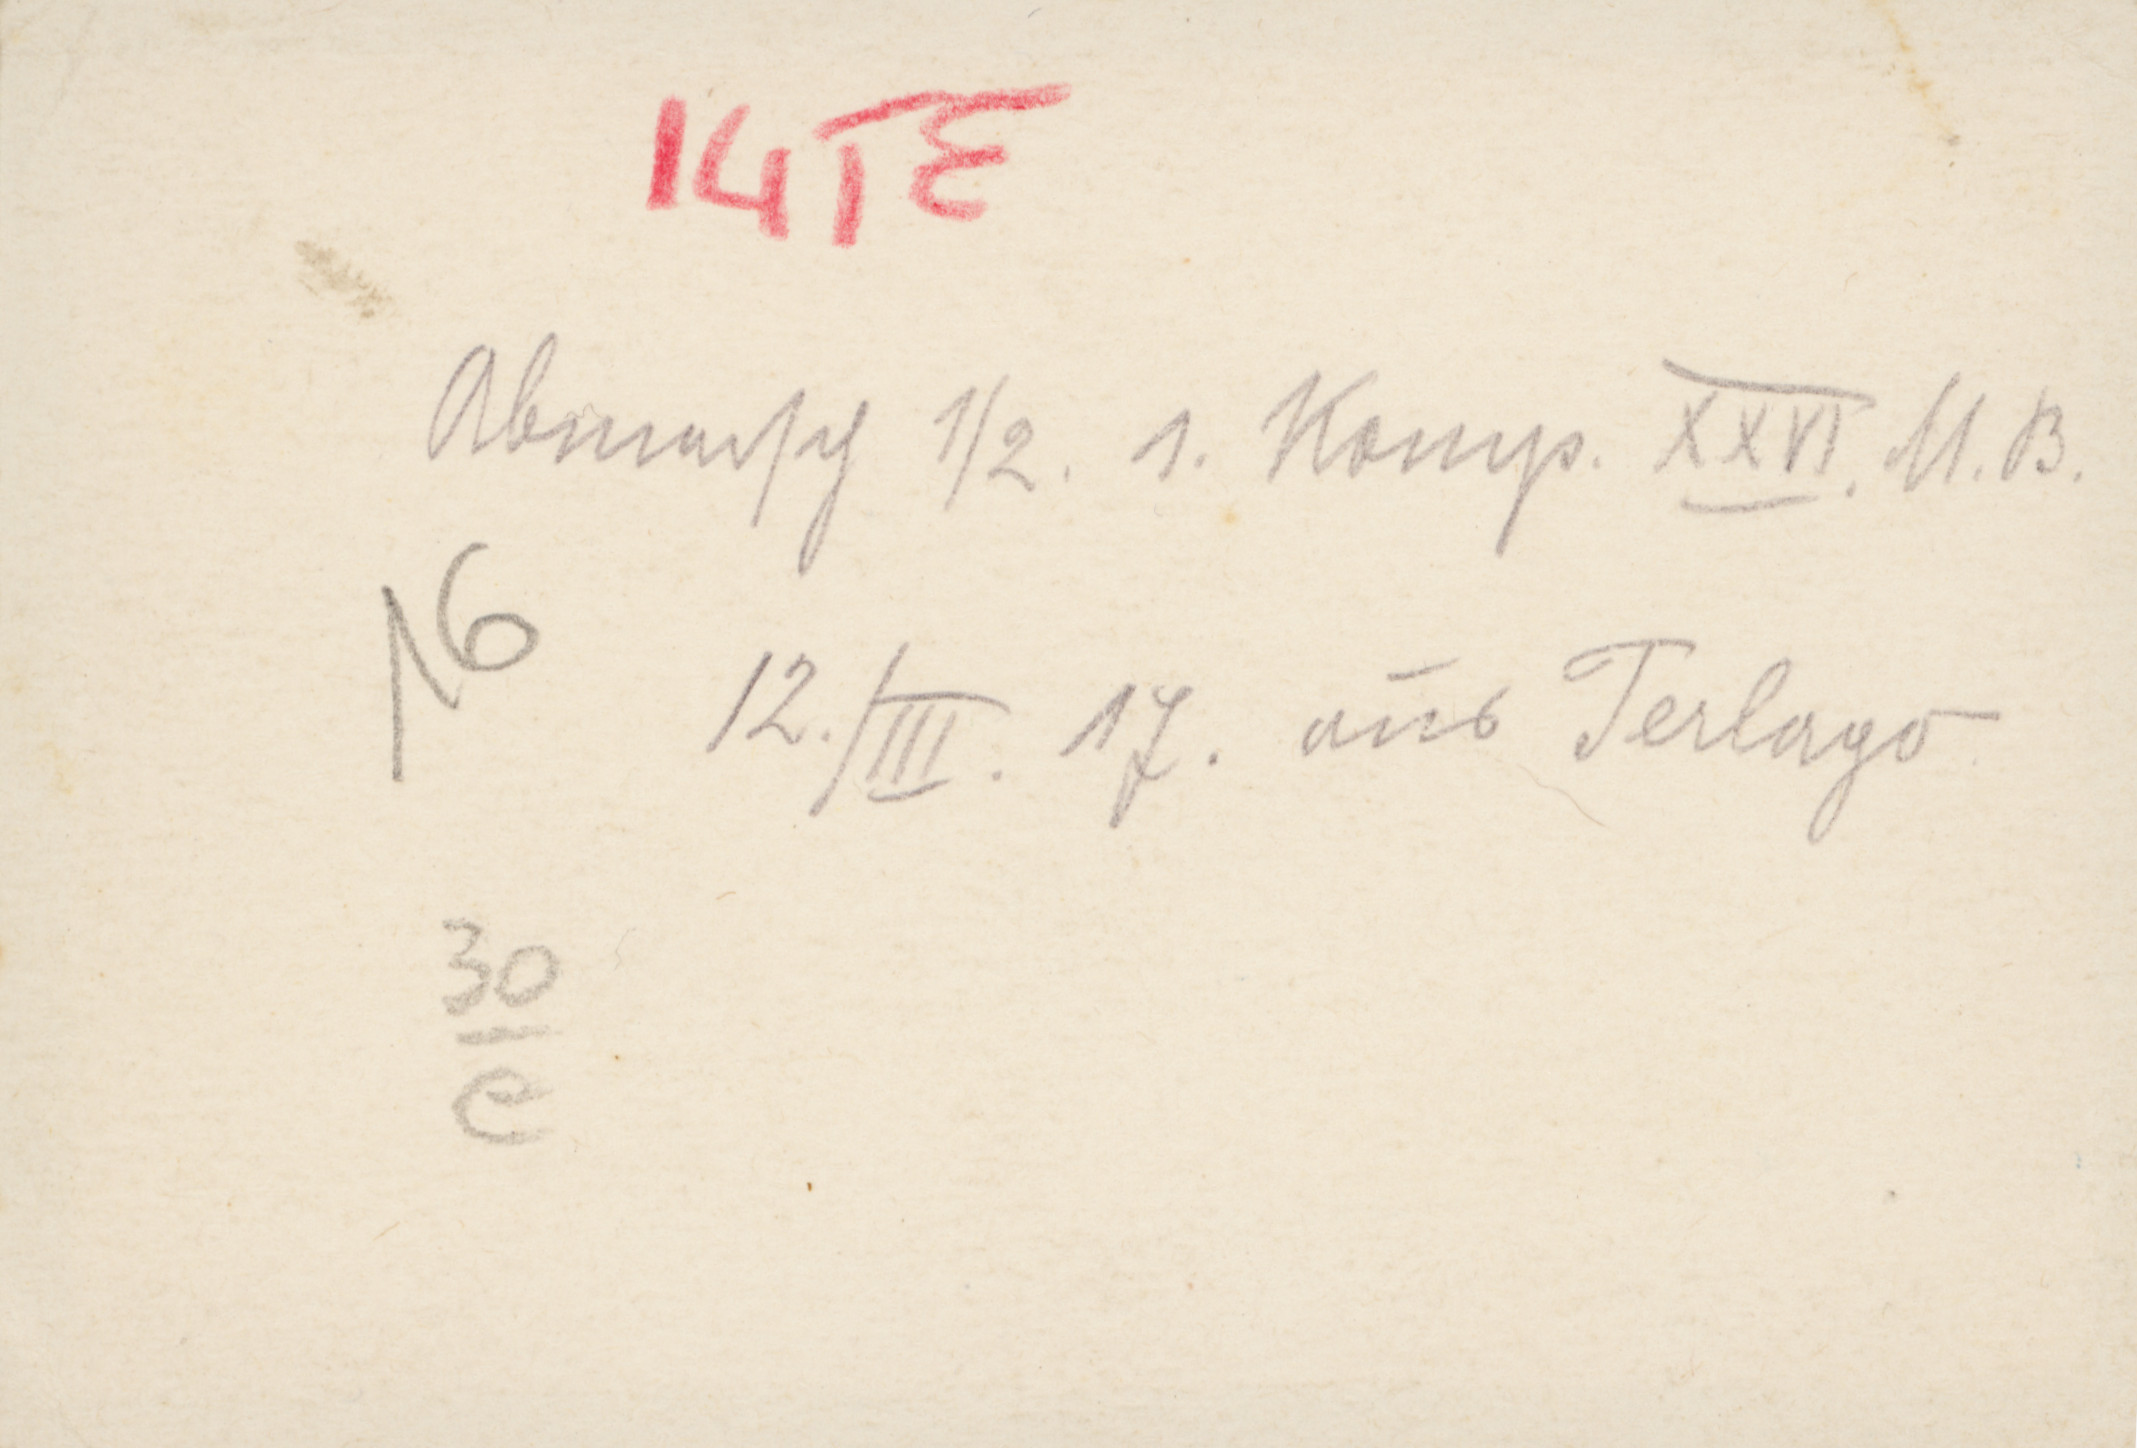 14TE
Abmarsch 1/2. 1. Komp. XXVI. M. B.
16
12./III. 17. aus Terlago
30
e